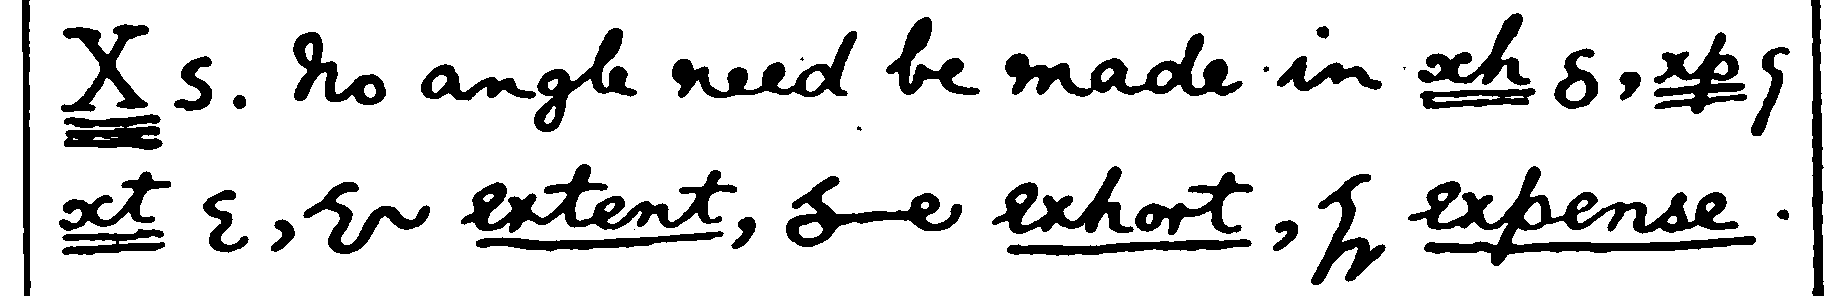 X s. No angle need be made in xh , xp
xt , extent, exhort, expense.